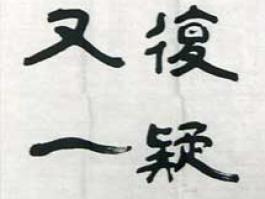 復疑
又一